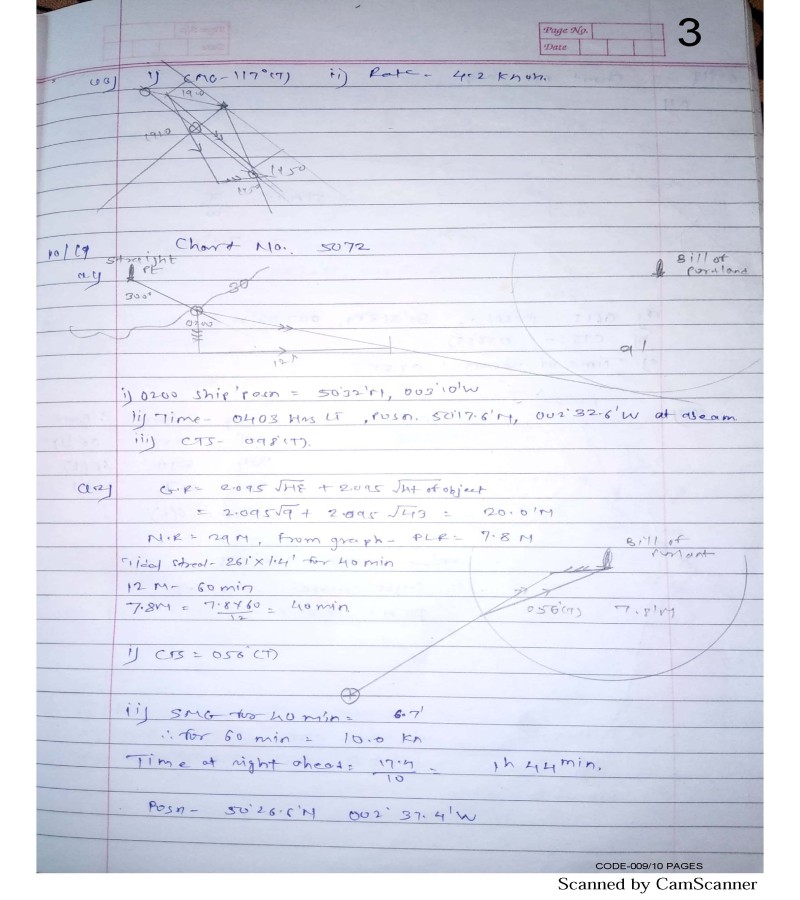 Page No.
Date
3
Q3) i) CMG - 117°(T) ii) Rate - 4.2 knots.
1900
1920
1950
1950
Chart No. 5072
Straight
Pt
300°
30
0200
12 h
Bill of
Portland
9'
i) 0200 Ship's posn = 50°32'N, 003°10'W
ii) Time - 0403 Hrs LT, Posn. 50°17.6'N, 002°32.6'W at abeam
iii) CTS - 098°(T).
Q2) G.R = 2.095 √HE + 2.095 √Ht of object
= 2.095√9 + 2.095 √43 = 20.0'M
N.R = 29 M, from graph - PLR = 7.8 M
Tidal Stream - 261° x 1.4' for 40 min
12 M - 60 min
7.8M = 7.8x60 / 12 = 40 min
Bill of
056°(T) 7.8'M
i) CTS = 056°(T)
ii) SMG for 40 min = 6.7'
∴ for 60 min = 10.0 Kn
Time at right ahead = 17.4 / 10 = 1h 44 min.
Posn - 50°26.6'N 002°37.4'W
CODE-009/10 PAGES
Scanned by CamScanner